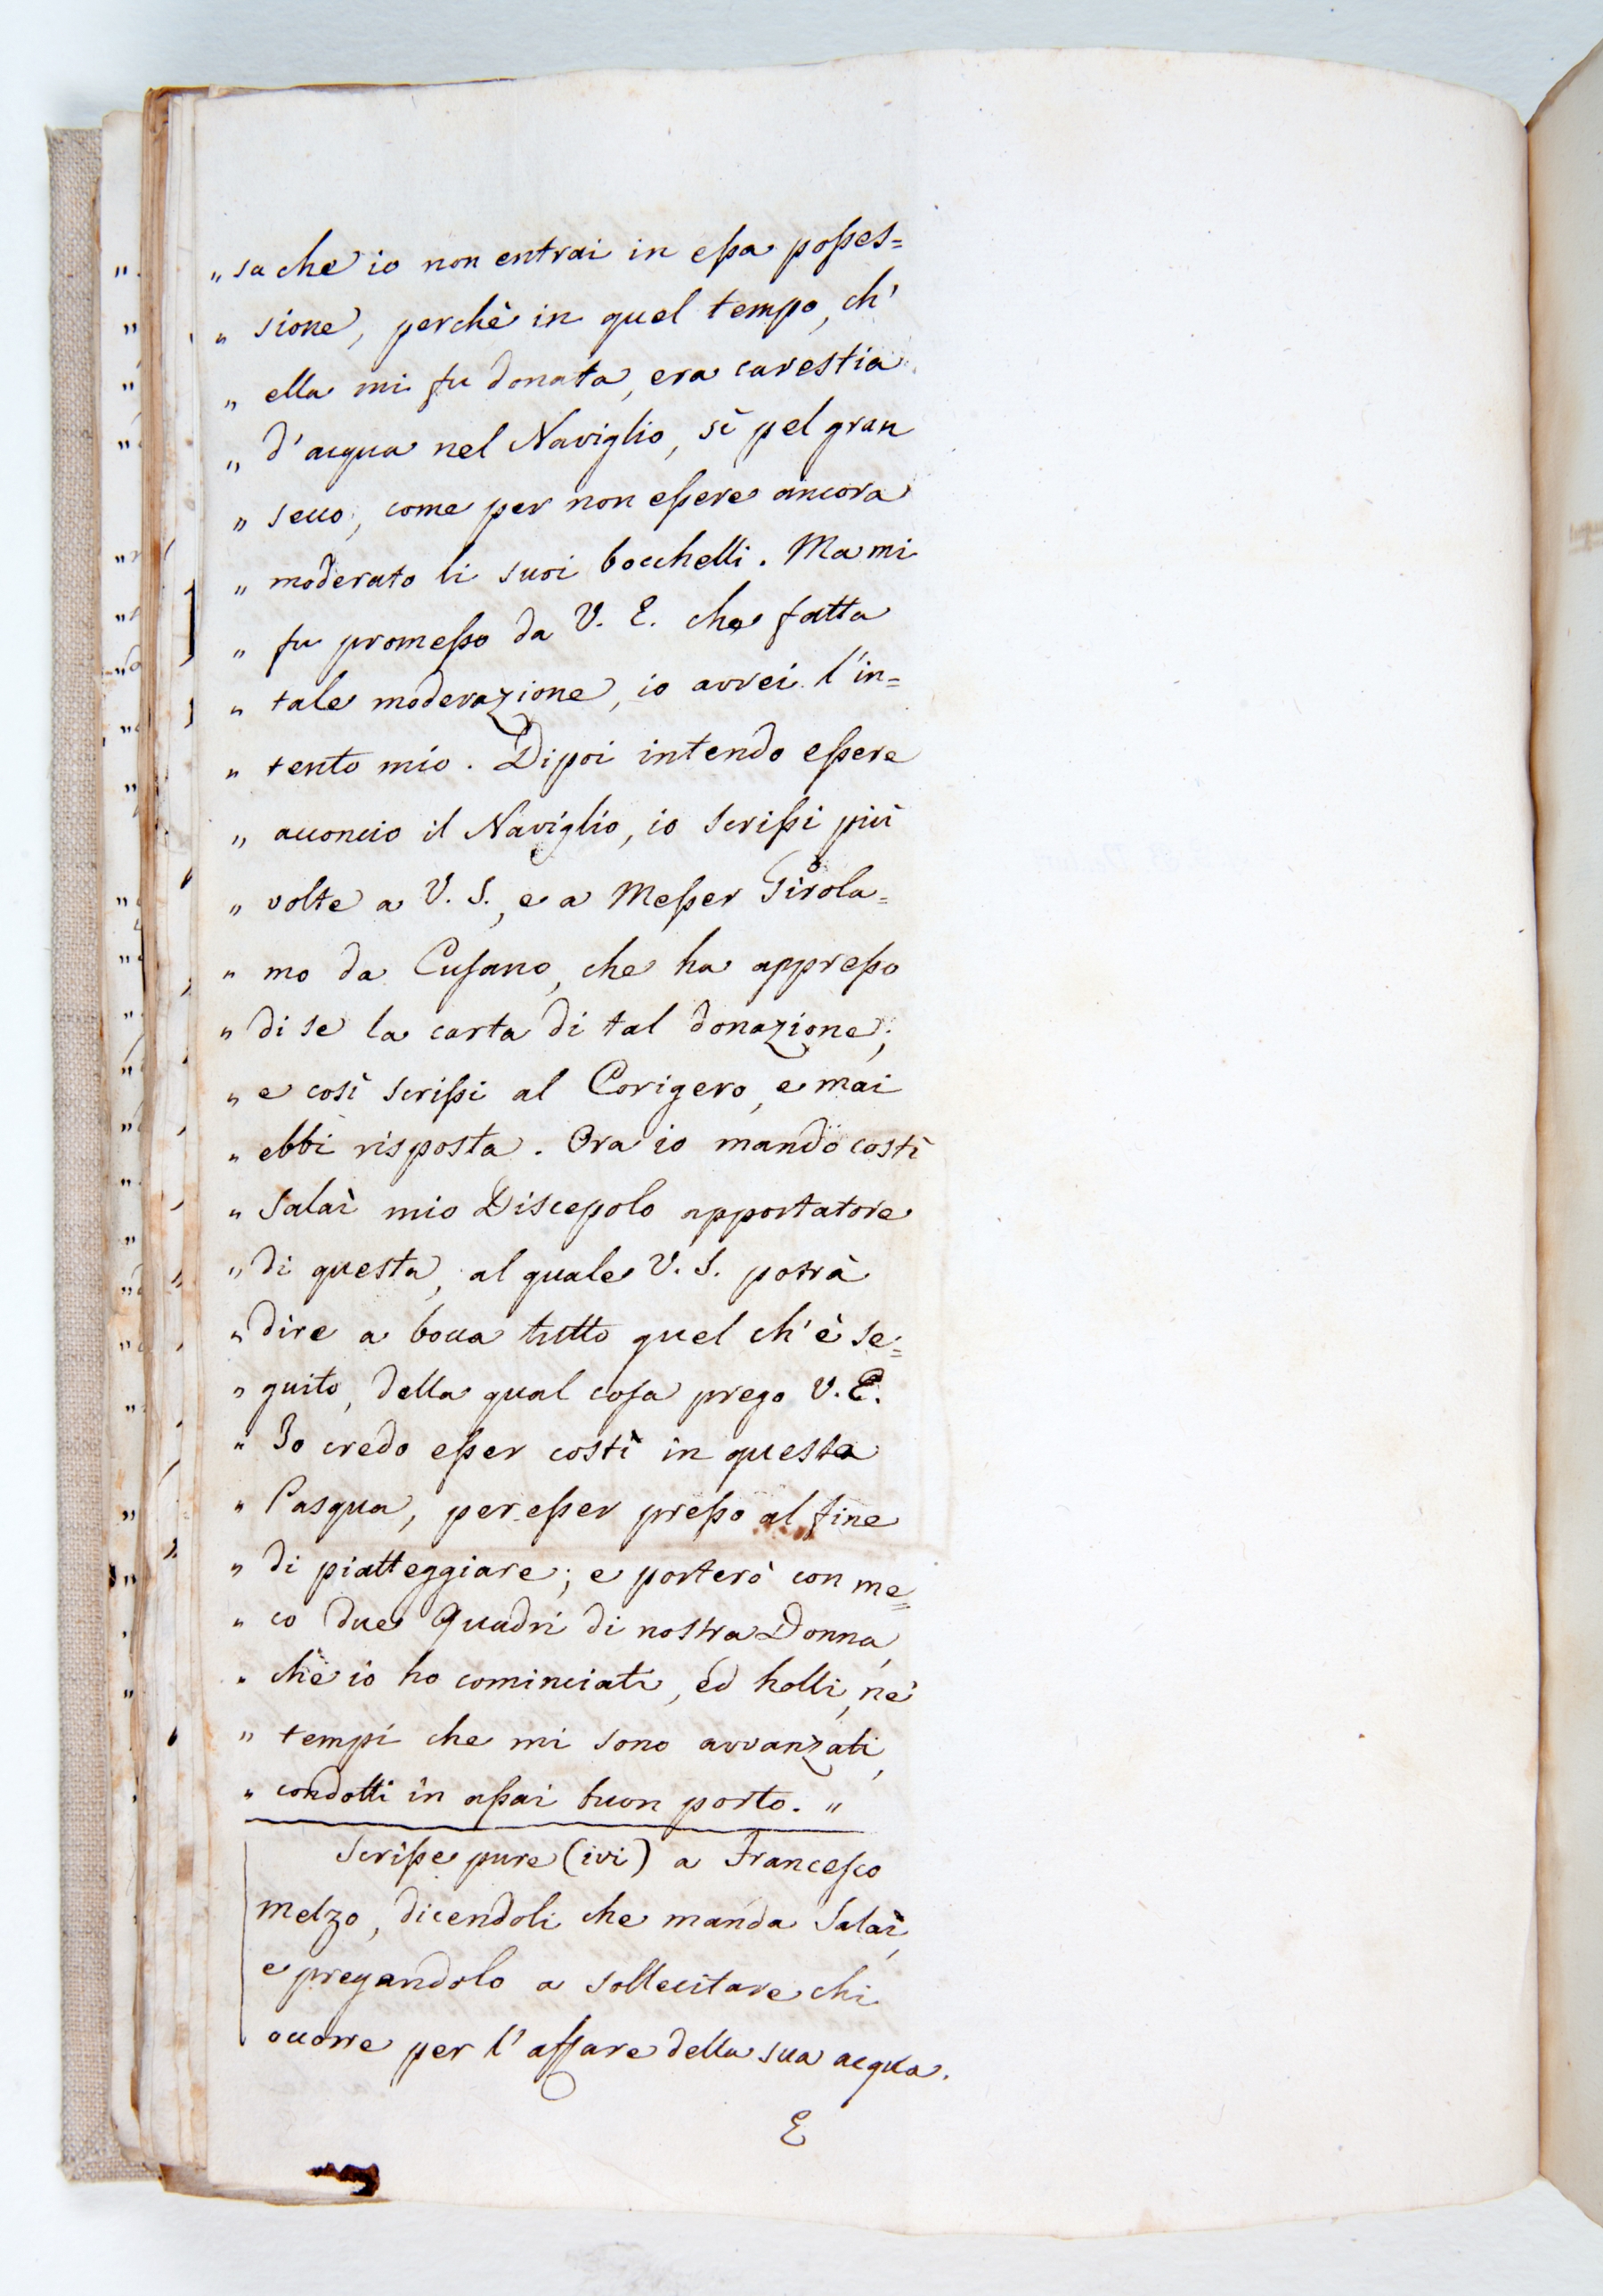 „ sa che io non entrai in eſsa poſses=
„ sione, perchè in quel tempo, ch'
„ ella mi fu donata, era carestia
„ d'acqua nel Naviglio, sì pel gran
„ secco, come per non eſsere ancora
„ moderato li suoi bocchelli. Ma mi
„ fu promeſso da V. E. che fatta
„ tale moderazione, io avrei l'in=
„ tento mio. Dipoi intendo eſsere
„ acconcio il Naviglio, io scriſsi più
„ volte a V. S., e a Meſser Girola=
„ mo da Cuſano, che ha appreſso
„ di se la carta di tal donazione;
„ e così scriſsi al Corigero, e mai
„ ebbi risposta. Ora io mando costì
„ Salaì mio Discepolo apportatore
„ di questa, al quale V. S. potrà
„ dire a bocca tutto quel ch'è se=
„ guito, della qual coſa prego V. E.
„ Io credo eſser costì in questa
„ Pasqua, per eſser preſso al fine
„ di piatteggiare; e porterò con me=
„ co due Quadri di nostra Donna,
„ che io ho cominciati, ed holli, ne'
„ tempi che mi sono avvanzati,
„ condotti in aſsai buon porto. „
Scriſse pure (ivi) a Franceſco
Melzo, dicendoli che manda Salaì,
e pregandolo a sollecitare chi
occorre per l'affare della sua acqua.
E